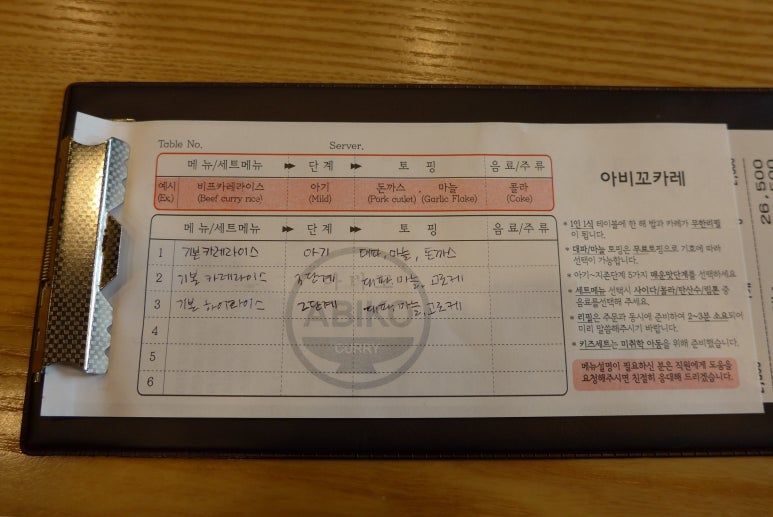 Table No. Server.
메 뉴/세트메뉴 ▶▶ 단 계 ▶▶ 토 핑 음 료/주 류
예시 (Ex.) 비프카레라이스 (Beef curry rice) 아기 (Mild) 돈까스 (Pork cutlet) , 마늘 (Garlic Flake) 콜라 (Coke)
메 뉴/세트메뉴 ▶▶ 단 계 ▶▶ 토 핑 음 료/주 류
1 기본카레라이스 아기 대파, 마늘, 돈까스
2 기본 카레라이스 3단계 대파, 마늘, 고로케
3 기본 하이라이스 2단계 대파, 마늘, 고로케
4
5
6
ABIKO
CURRY
아비꼬카레
* 1인 1식 테이블에 한 해 밥과 카레가 무한리필
이 됩니다.
* 대파/마늘 토핑은 무료토핑으로 기호에 따라
선택이 가능합니다.
* 아기~지존단계 5가지 매운맛단계를 선택하세요
* 세트메뉴 선택시 사이다/콜라/탄산수/립톤 중
음료를선택해 주세요.
* 리필은 주문과 동시에 준비하여 2~3분 소요되어
미리 말씀해주시기 바랍니다.
* 키즈세트는 미취학 아동을 위해 준비했습니다.
메뉴설명이 필요하신 분은 직원에게 도움을
요청해주시면 친절히 응대해 드리겠습니다.
26,500